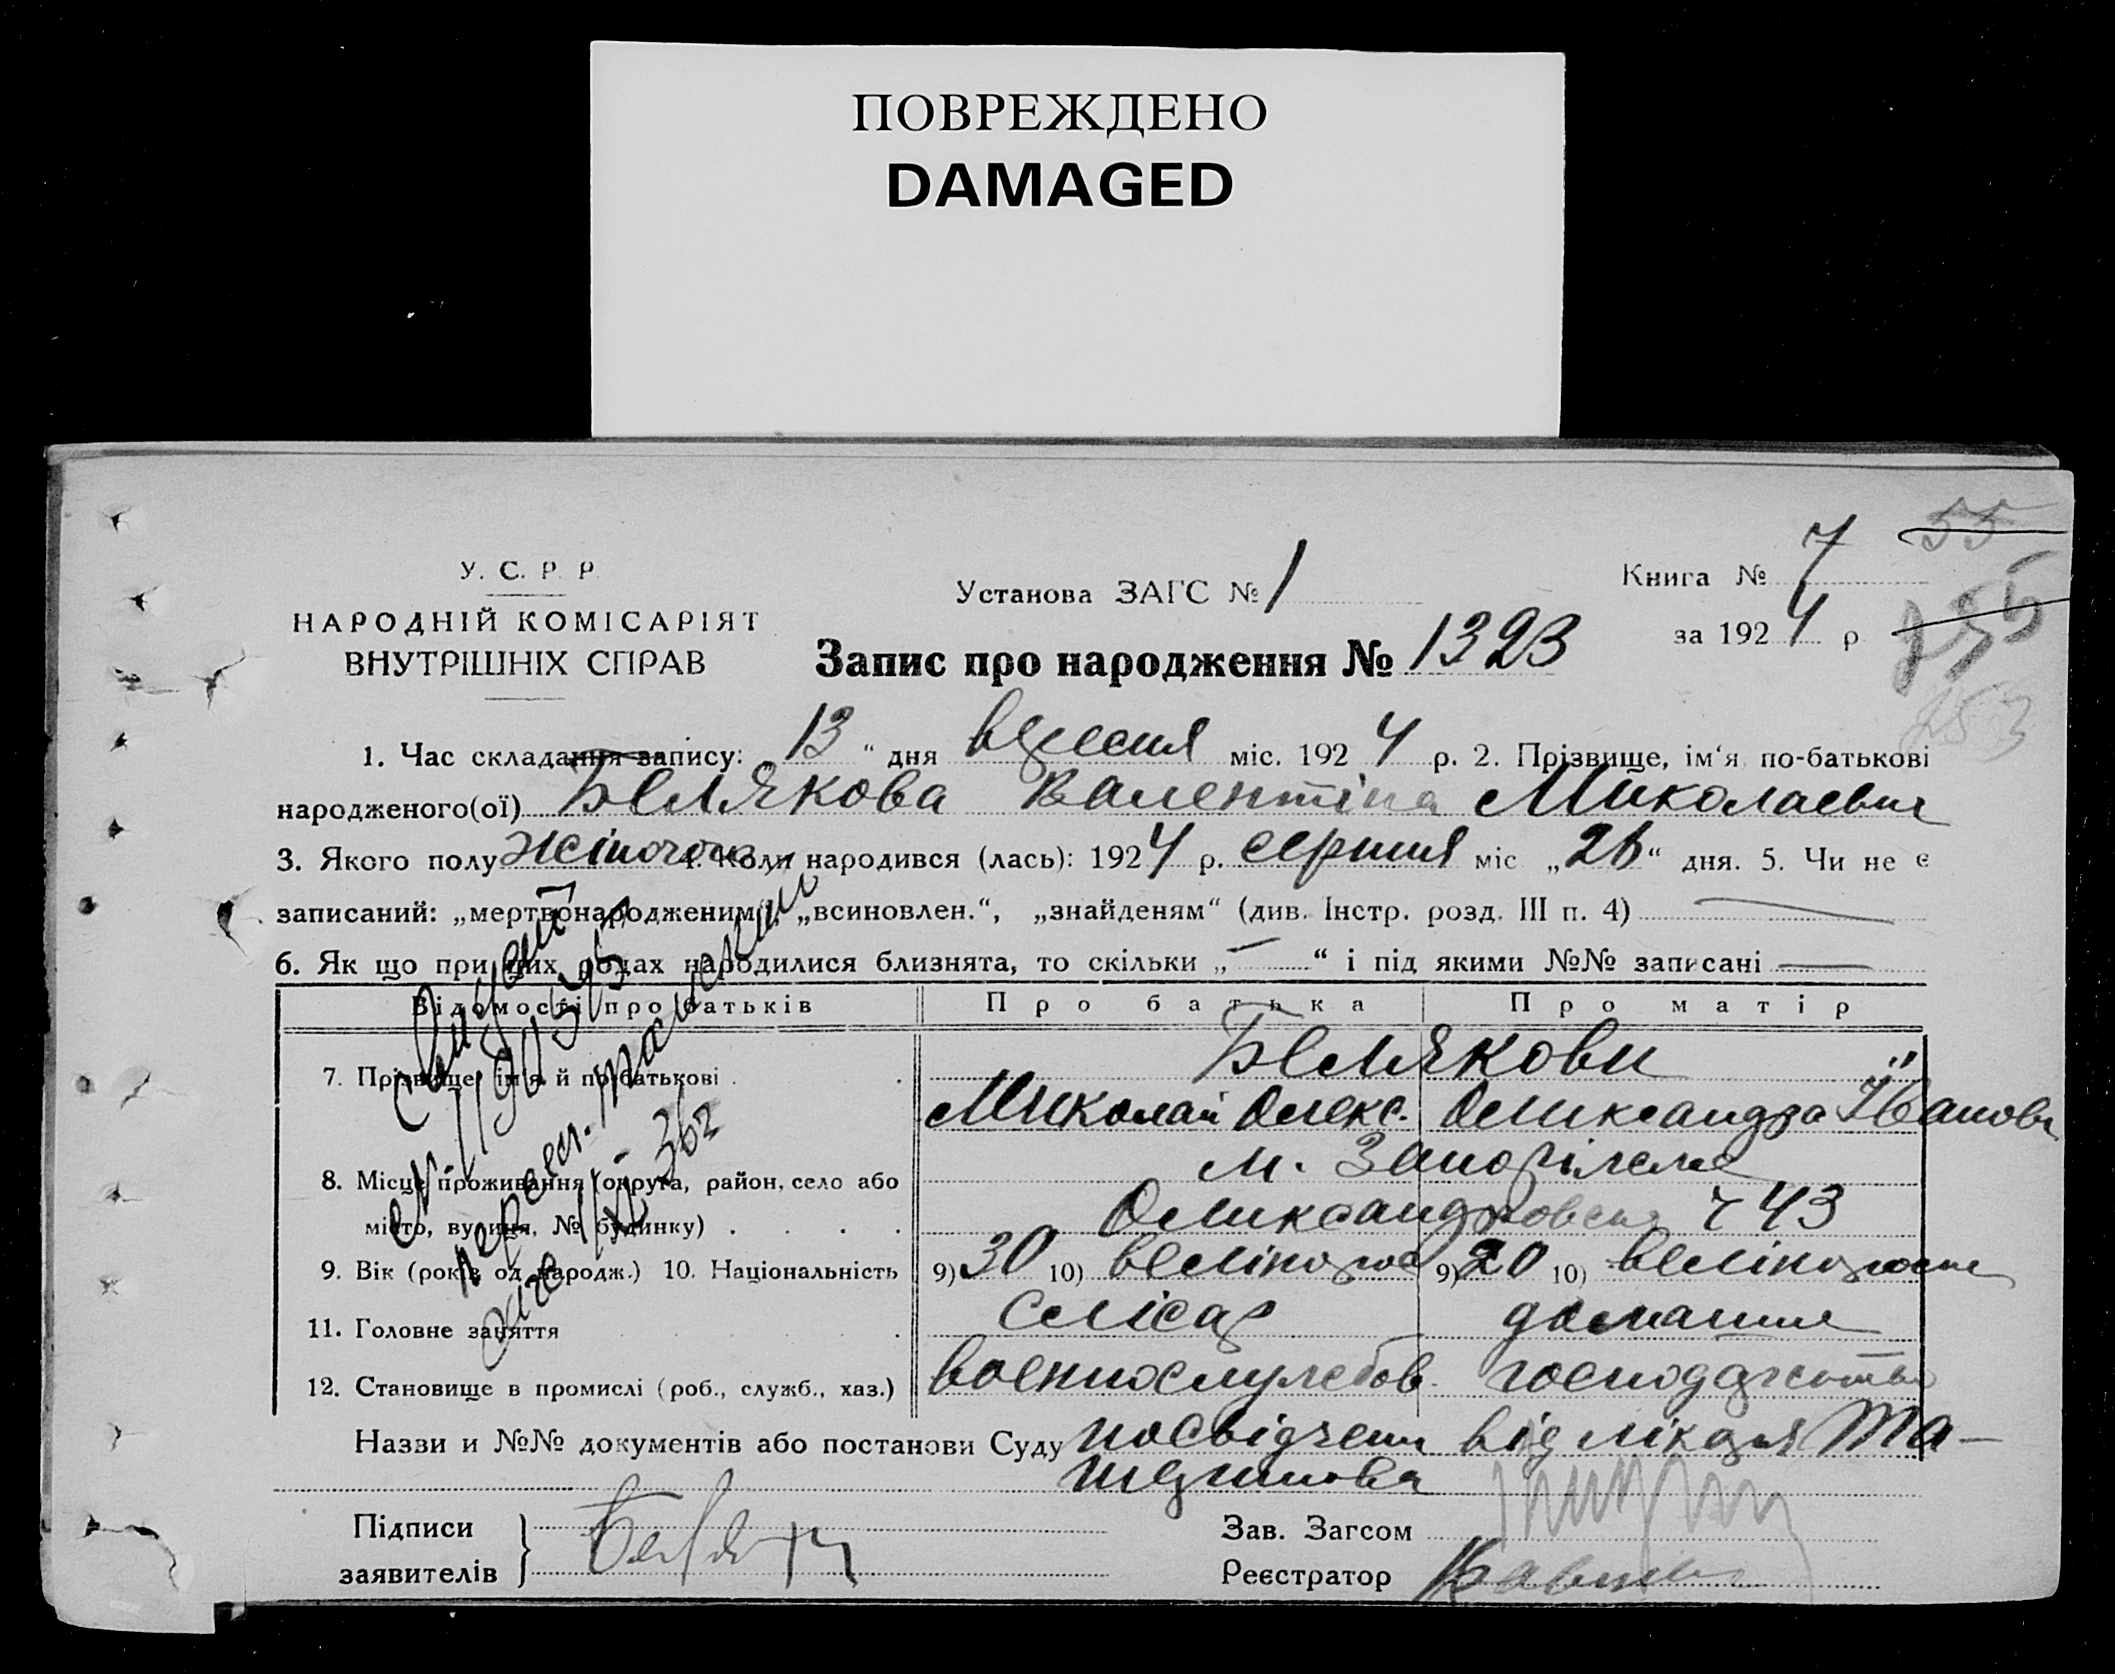 ПОВРЕЖДЕНО
DAMAGED
55
У. С. Р. Р.
НАРОДНІЙ КОМІСАРІЯТ
ВНУТРІШНІХ СПРАВ
Установа ЗАГС № 1
Книга № 7
за 1924 р
255
253
Запис про народження № 1323
1. Час складання запису: „ 13 “ дня вересня міс. 1924 р. 2. Прізвище, ім‘я по-батькові
народженого(ої) Белякова Валентіна Миколаевна
3. Якого полу жіночого 4. Коли народився (лась): 1924 р. серпня міс „26“ дня. 5. Чи не є
записаний: „мертвонародженим“, „всиновлен.“, „знайденям“ (див. Інстр. розд. III п. 4)
6. Як що при цих родах народилися близнята, то скільки „ — “ і під якими №№ записані —
Відомості про батьків Про батька Про матір
7. Прізвище, ім‘я й по-батькові Белякови
Миколай Олекс. Олександра Іванов
8. Місце проживання (округа, район, село або м. Запоріжжя
місто, вулиця, № будинку) Олександровська 43
9. Вік (років од народж.) 10. Національність 9) 30 10) 9) 20 10)
11. Головне заняття слюсар домашнє
12. Становище в промислі (роб., служб., хаз.) господарство
Назви и №№ документів або постанови Суду посвідчення від лікаря
Підписи
заявителів
Зав. Загсом
Реєстратор